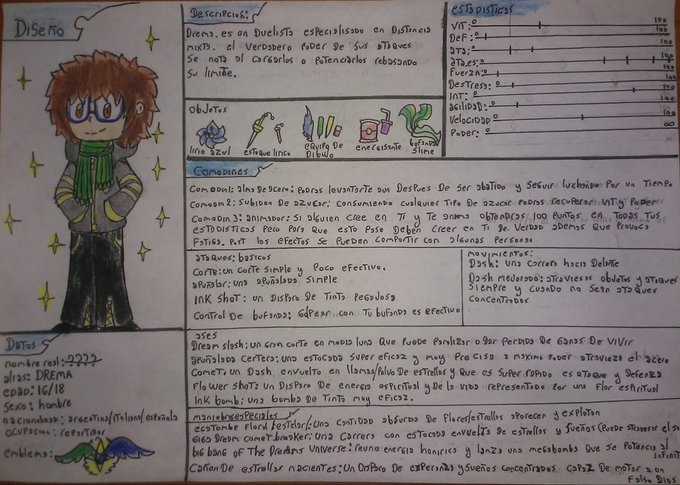 Diseño
Descripcion:
Drema es un Duelista especialisado en Distancia
mixta. el Verdadero Poder De sus ataques
Se nota al cargarlos o Potenciarlos rebasando
Su limite.
Objetos
lirio azul
estoque lirico
equipo de Dibujo
energisante
bufanda slime
estadisticas
VIT: 0 100
DeF: 0 100
ata: 0 100
ata.es: 0 100
Fuerza: 0 100
Destresa: 0 100
INT: 0 100
agilidad: 0 100
Velocidad 0 100
Poder: 0
Comodines
Comodin1: alma de acero: Podras levantarte aun Despues De ser abatido y seguir luchando Por un tiempo
Comodin 2: Subidon de azucar: Consumiendo cualquier tipo De azucar Podras recuperar VIT y Poder
Comodin 3: animador: Si alguien Cree en Ti y Te anima obtendras 100 Puntos en Todas Tus
estadisticas Pero Para que esto Pase Deben Creer en Ti de Verdad ademas que Provoca
Fatiga Post los efectos Se Pueden Compartir con algunas Personas
ataques: basicos
Corte: un Corte Simple y Poco efectivo.
apuñalar: una apuñalada simple
INK Shot: un Disparo De Tinta Pegajosa
Control De bufanda: Golpear con Tu bufanda es efectivo
movimientos:
Dash: una Carrera hacia Delante
Dash mejorado: atraviesas objetos y ataques
Siempre y Cuando no Sean ataques
Concentrados
ases
Dream slash: un gran corte en media luna que Puede Paralizar o Dar Perdida De Ganas De ViVir
apuñalada Certera: una estocada Super eficaz y muy Precisa a maximo Poder atraviesa el acero
Comet: un Dash envuelto en llamas/Polvo De estrellas y que es Super rapido es ataque y Defensa
Flower Shot: un Disparo De energia espiritual y De la Vida representado Por una Flor espiritual
INK bomb: una bomba De Tinta muy eficaz.
maniobras especiales
ecatombe Floral/estelar/: Una Cantidad absurda De Flores/estrellas aparecen y explotan
Giga Dream comet breaker: Una Carrera con estocada envuelta De estrellas y Sueños (Puede atravesar el
big bang of The Dreams Universe: reune energia honirica y lanza una megabomba que Se Potencia al infinito
Cañon De estrellas nacientes: Un Disparo De esperanza y Sueños Concentrados. Capaz De matar a un
Falso Dios
Datos
nombre real: ????
alias: DREMA
edad: 16/18
Sexo: hombre
nacionalidad: argentina/italiana/española
Ocupacion: repartidor
emblema: